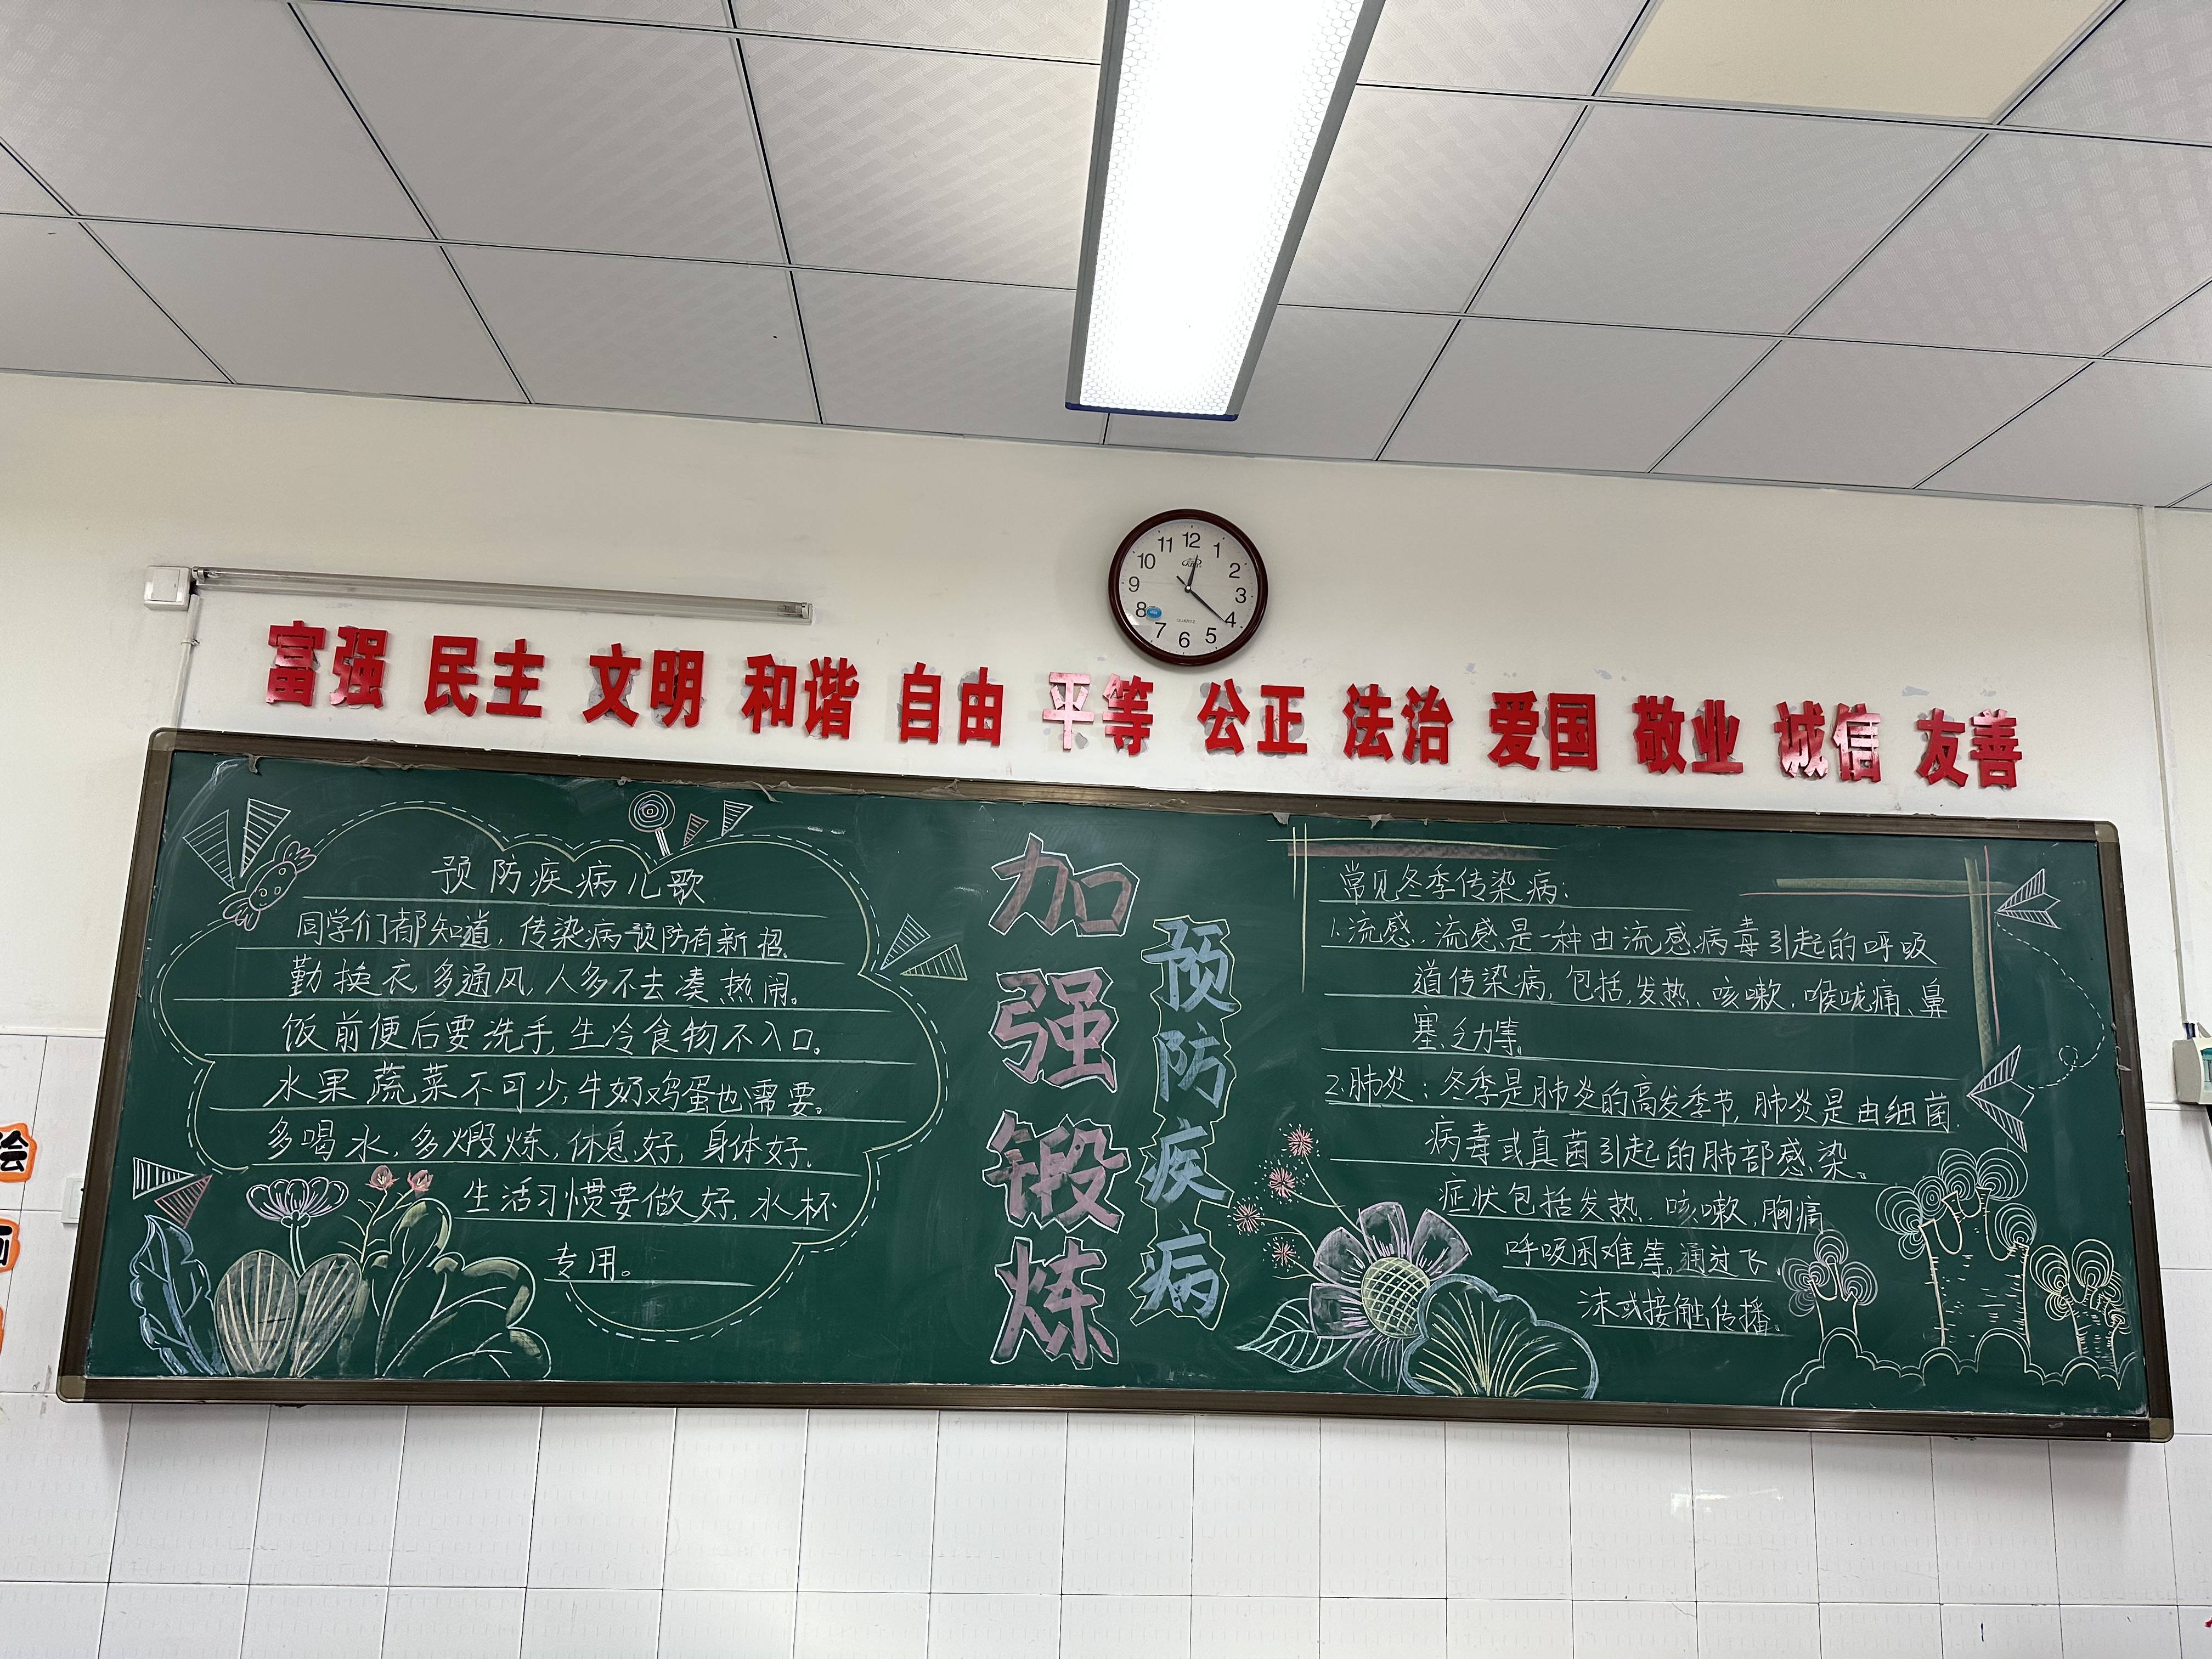 富强 民主 文明 和谐 自由 平等 公正 法治 爱国 敬业 诚信 友善
12
1
2
3
4
5
6
7
8
9
10
11
QUARTZ
预防疾病儿歌
同学们都知道，传染病预防有新招.
勤换衣,多通风,人多不去凑热闹。
饭前便后要洗手,生冷食物不入口。
水果蔬菜不可少,牛奶鸡蛋也需要。
多喝水,多煅炼,休息好,身体好.
生活习惯要做好,水杯
专用。
加强锻炼
预防疾病
常见冬季传染病:
1.流感.流感是一种由流感病毒引起的呼吸
道传染病,包括,发热、咳嗽,喉咙痛、鼻
塞、乏力等。
2.肺炎:冬季是肺炎的高发季节,肺炎是由细菌
病毒或真菌引起的肺部感染。
症状包括发热、咳嗽,胸痛
呼吸困难,等。通过飞
沫或接触传播。
绘